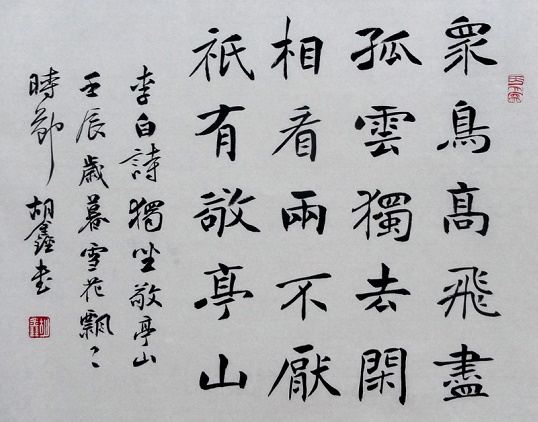 眾鳥高飛盡
孤雲獨去閑
相看兩不厭
祇有敬亭山
李白詩獨坐敬亭山
壬辰歲暮雪花飄〻
時節胡鑫書